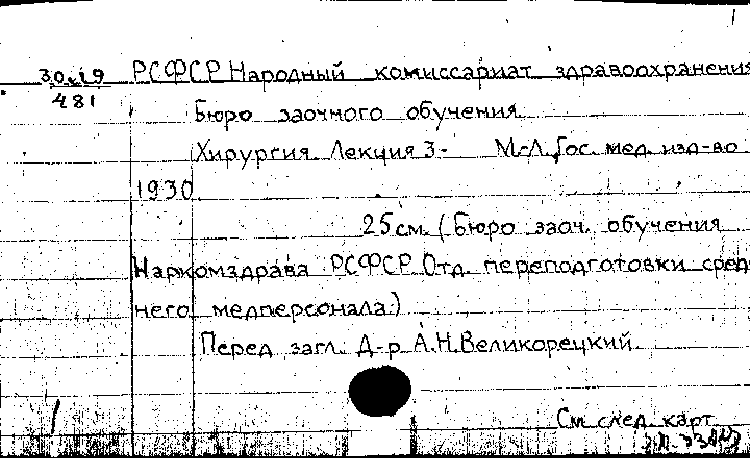 1
30.19 РСФСР Народный комиссариат здравоохранения
481
Бюро заочного обучения
Хирургия. Лекция 3- М.-Л., Гос. мед. изд-во
1930
25 см. (Бюро заоч. обучения
Наркомздрава РСФСР. Отд. переподготовки сред-
него медперсонала)
Перед загл. Д-р А.Н. Великорецкий.
См. след. карт.